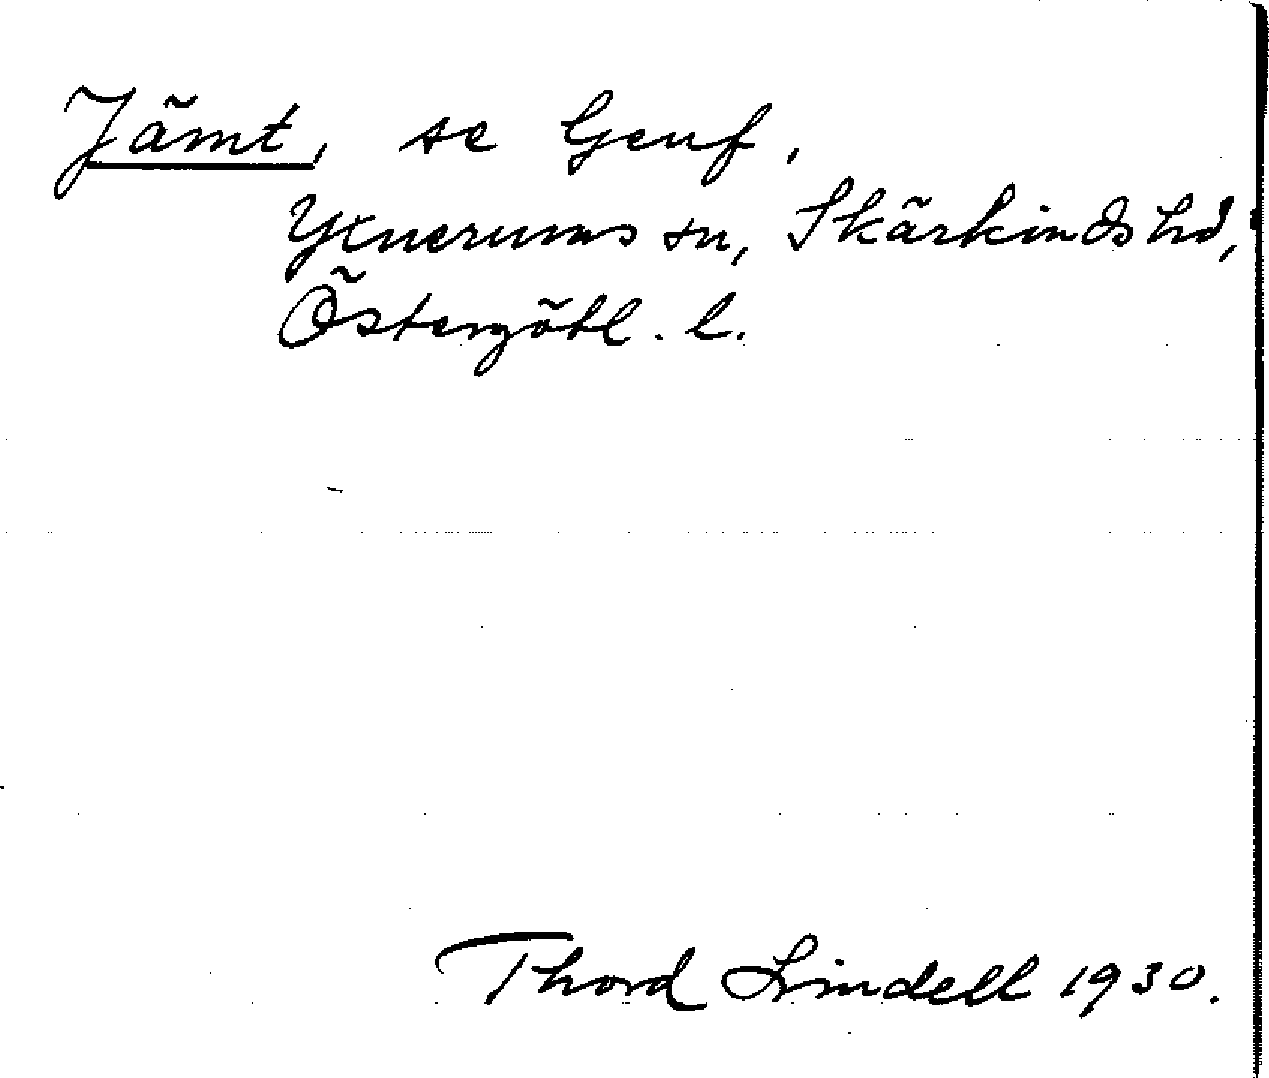 Jämt, se Genf.
Yxnerums sn, Skärkinds hd,
Östergötl. l.
Thord Lindell 1930.